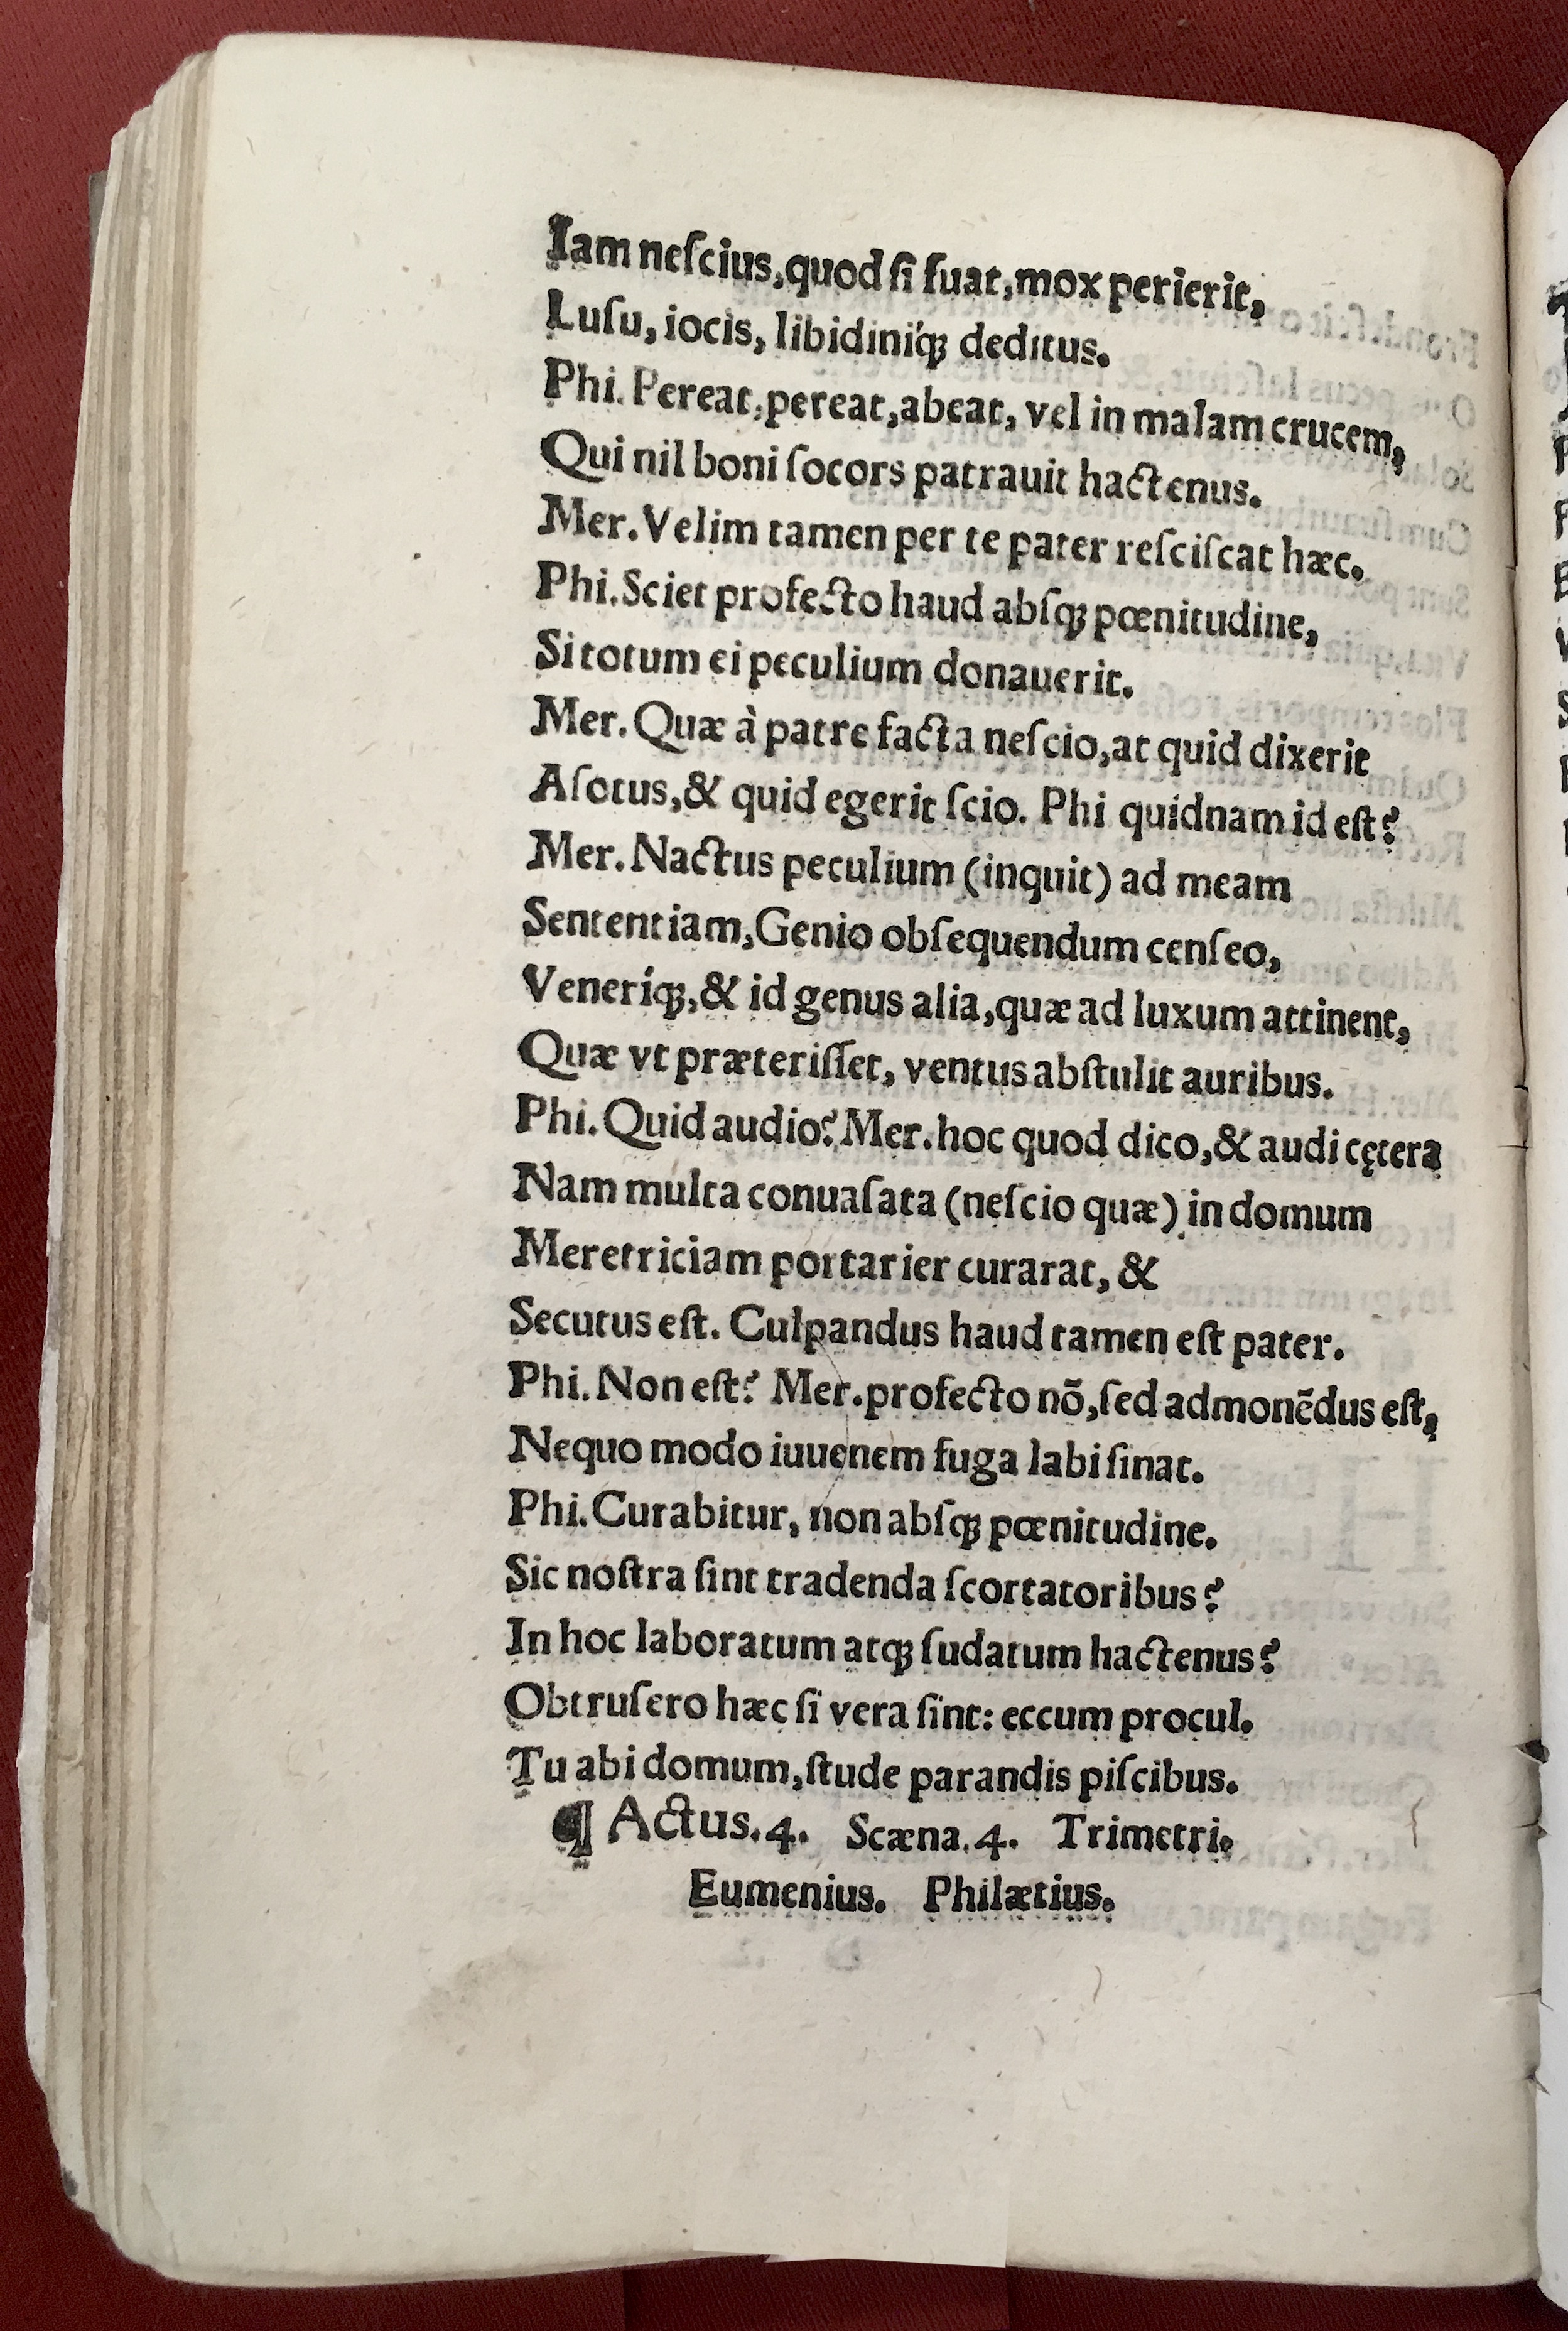 Iam neſcius,quod ſi fuat,mox perierit,
Luſu, iocis, libidiníq́ꝫ deditus.
Phi. Pereat,pereat,abeat, vel in malam crucem,
Qui nil boni ſocors patrauit hactenus.
Mer.Velim tamen per te pater reſciſcat hæc.
Phi.Sciet profecto haud abſqꝫ pœnitudine,
Si totum ei peculium donauerit.
Mer.Quæ à patre facta neſcio,at quid dixerit
Aſotus,& quid egerit ſcio. Phi quidnam id eſt?
Mer.Nactus peculium (inquit) ad meam
Sententiam,Genio obſequendum cenſeo,
Veneríqꝫ,& id genus alia,quæ ad luxum attinent,
Quæ vt præteriſſet, ventus abſtulit auribus.
Phi.Quid audio? Mer.hoc quod dico,& audi cętera
Nam multa conuaſata (neſcio quæ) in domum
Meretriciam portarier curarat, &
Secutus eſt. Culpandus haud tamen eſt pater.
Phi.Non eſt? Mer.profecto nō,ſed admonēdus eſt,
Nequo modo iuuenem fuga labi ſinat.
Phi.Curabitur, non abſqꝫ pœnitudine.
Sic noſtra ſint tradenda ſcortatoribus?
In hoc laboratum atqꝫ ſudatum hactenus?
Obtruſero hæc ſi vera ſint: eccum procul.
Tu abi domum,ſtude parandis piſcibus.
¶ Actus.4. Scæna.4. Trimetri.
Eumenius. Philætius.